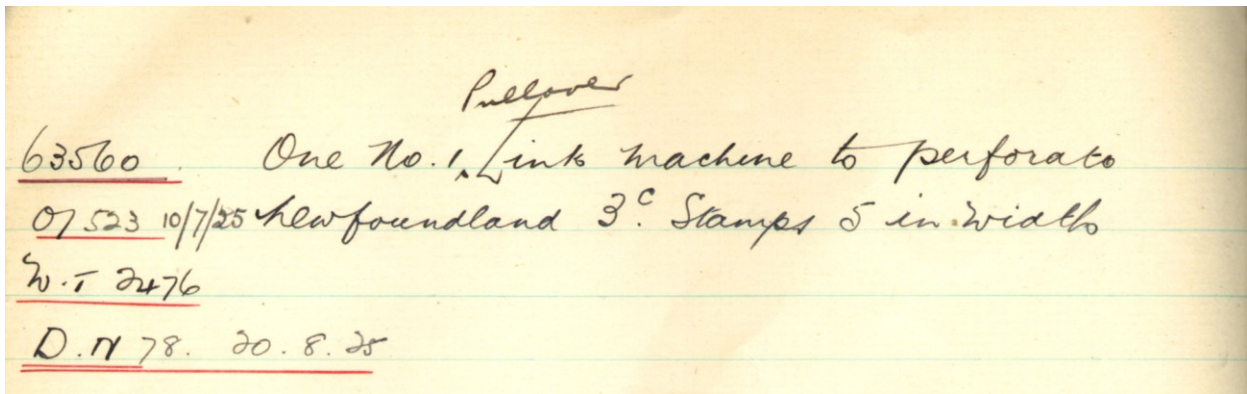 Pullover
63560 One No. 1. Link machine to perforate
O/523 10/7/25 Newfoundland 3c. Stamps 5 in width
W.T 2476
D.N 78. 20.8.25